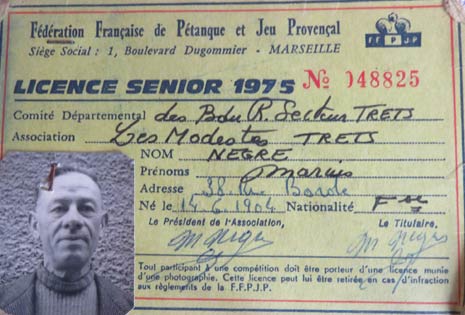 Fédération Française de Pétanque et Jeu Provençal
Siège Social : 1, Boulevard Dugommier - MARSEILLE
F F P J P
LICENCE SENIOR 1975 No 048825
Comité Départemental des B du R. Secteur TRETS
Association Les Modestes TRETS
NOM NEGRE
Prénoms Marius
Adresse 38. Rue
Né le 14.6.1904 Nationalité Fse
Le Président de l'Association, Le Titulaire.
M Negre
Tout participant à une compétition doit être porteur d'une licence munie
d'une photographie. Cette licence peut lui être retirée en cas d'infraction
aux règlements de la F.F.P.J.P.